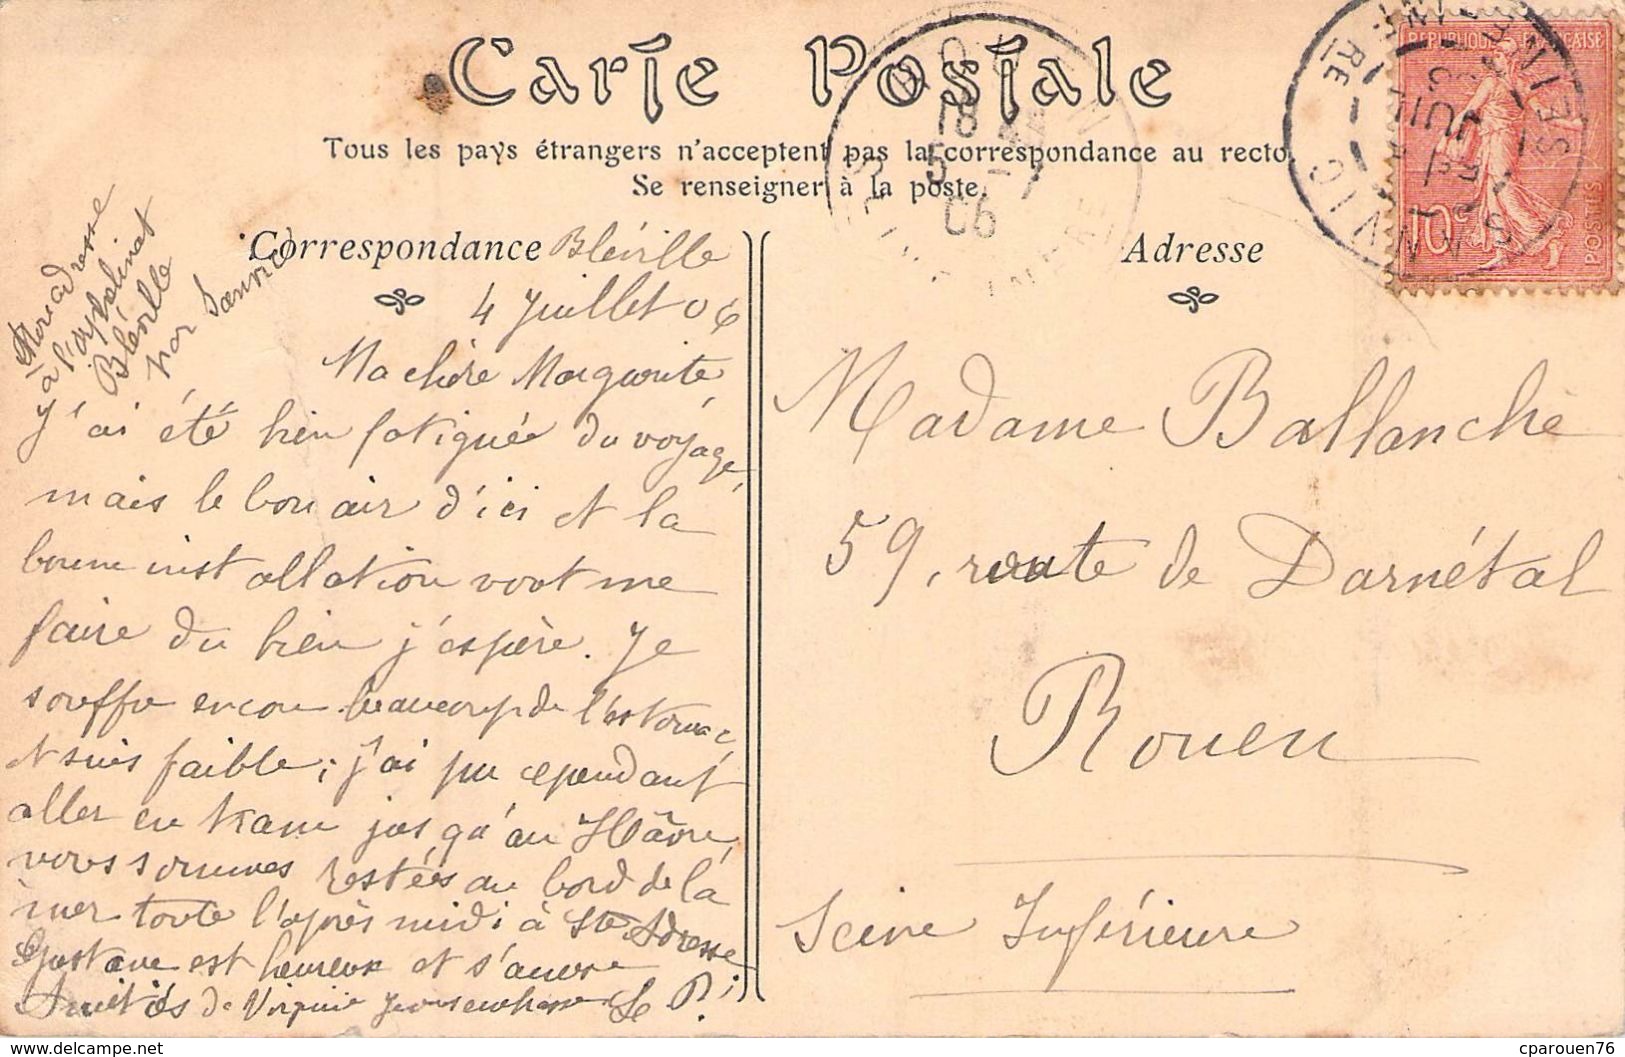 Carte Postale
Tous les pays étrangers n'acceptent pas la correspondance au recto.
Se renseigner à la poste.
Correspondance
Adresse
Mon adresse
à l'orphelinat
Bléville
par Sanvic
Bléville
4 Juillet 06
Ma chère Marguerite,
J'ai été bien fatiguée du voyage,
mais le bon air d'ici et la
bonne installation vont me
faire du bien j'espère. Je
souffre encore beaucoup de l'estomac,
et suis faible ; j'ai pu cependant
aller en tram jusqu'au Hâvre,
nous sommes restées au bord de la
mer toute l'après midi à Ste Adresse
Gustave est heureux et s'amuse
Amitiés de Virginie je vous embrasse
Madame Ballanche
59, route de Darnétal
Rouen
Seine Inférieure
REPUBLIQUE FRANÇAISE
10c
POSTES
SANVIC
SEINE INFRE
ROUEN
18
5 -7
06
cparouen76